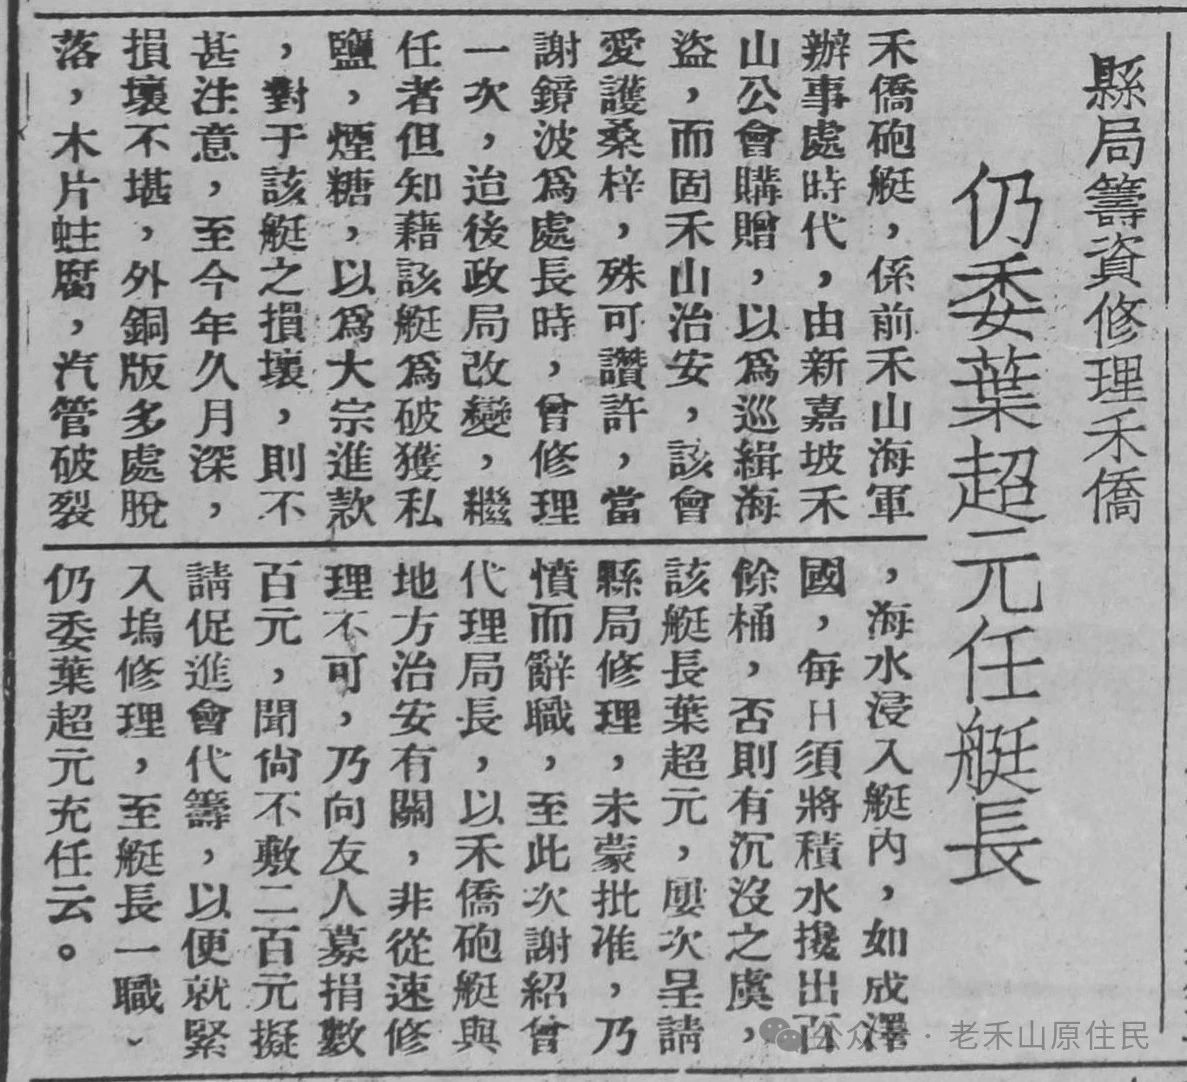 縣局籌資修理禾僑
仍委葉超元任艇長
禾僑砲艇，係前禾山海軍
辦事處時代，由新嘉坡禾
山公會購贈，以爲巡緝海
盜，而固禾山治安，該會
愛護桑梓，殊可讚許，當
謝鏡波爲處長時，曾修理
一次，迨後政局改變，繼
任者但知藉該艇爲破獲私
鹽，煙糖，以爲大宗進款
，對于該艇之損壞，則不
甚注意，至今年久月深，
損壞不堪，外銅版多處脫
落，木片蛀腐，汽管破裂
，海水浸入艇內，如成澤
國，每日須將積水攙出百
餘桶，否則有沉沒之虞，
該艇長葉超元，屢次呈請
縣局修理，未蒙批准，乃
憤而辭職，至此次謝紹曾
代理局長，以禾僑砲艇與
地方治安有關，非從速修
理不可，乃向友人募捐數
百元，聞尙不敷二百元擬
請促進會代籌，以便就緊
入塢修理，至艇長一職、
仍委葉超元充任云。
公众号 · 老禾山原住民